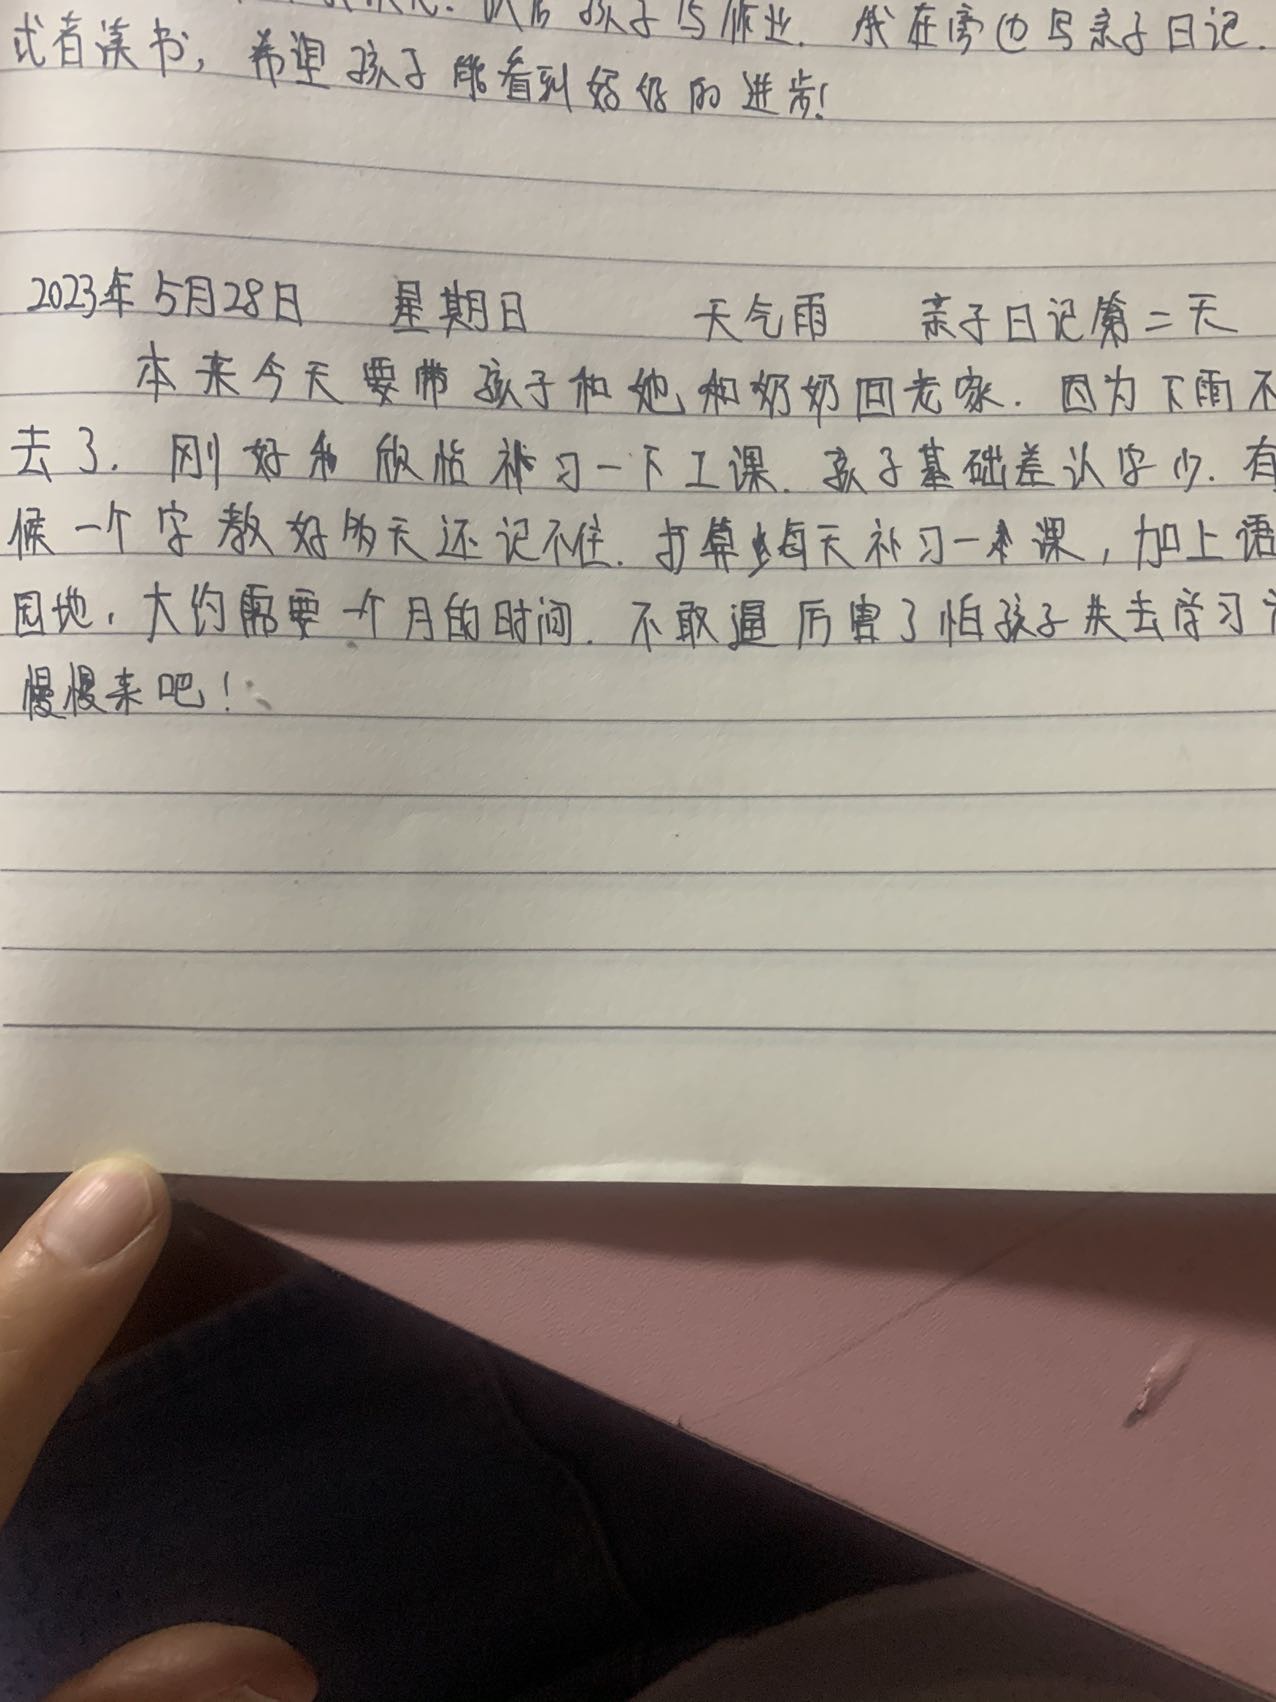 以后孩子写作业. 我在旁边写亲子日记.
式者读书, 希望孩子能看到妈妈的进步!
2023年5月28日 星期日 天气雨 亲子日记第二天
本来今天要带孩子和她和奶奶回老家. 因为下雨不
去了. 刚好和欣怡补习一下工课. 孩子基础差认字少. 有
候一个字教好多天还记不住. 打算每天补习一课, 加上语
园地, 大约需要一个月的时间. 不敢逼厉害了怕孩子失去学习
慢慢来吧!